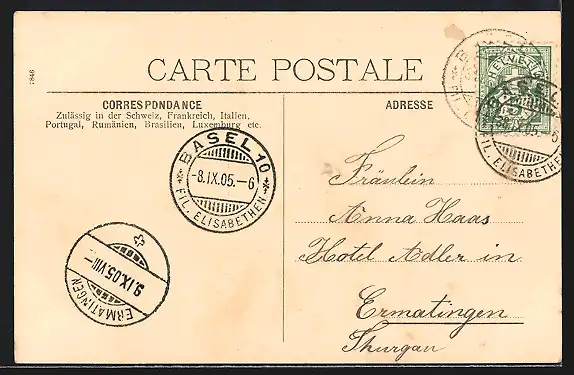 7846
CARTE POSTALE
CORRESPONDANCE
Zulässig in der Schweiz, Frankreich, Italien,
Portugal, Rumänien, Brasilien, Luxemburg etc.
ADRESSE
HELVETIA
BASEL
IX.05.–6
FIL. ELISABETHEN
BASEL 10
-8.IX.05.–6
FIL. ELISABETHEN
9.IX.05.VIII–
ERMATINGEN
Fräulein
Anna Haas
Hotel Adler in
Ermatingen
Thurgau